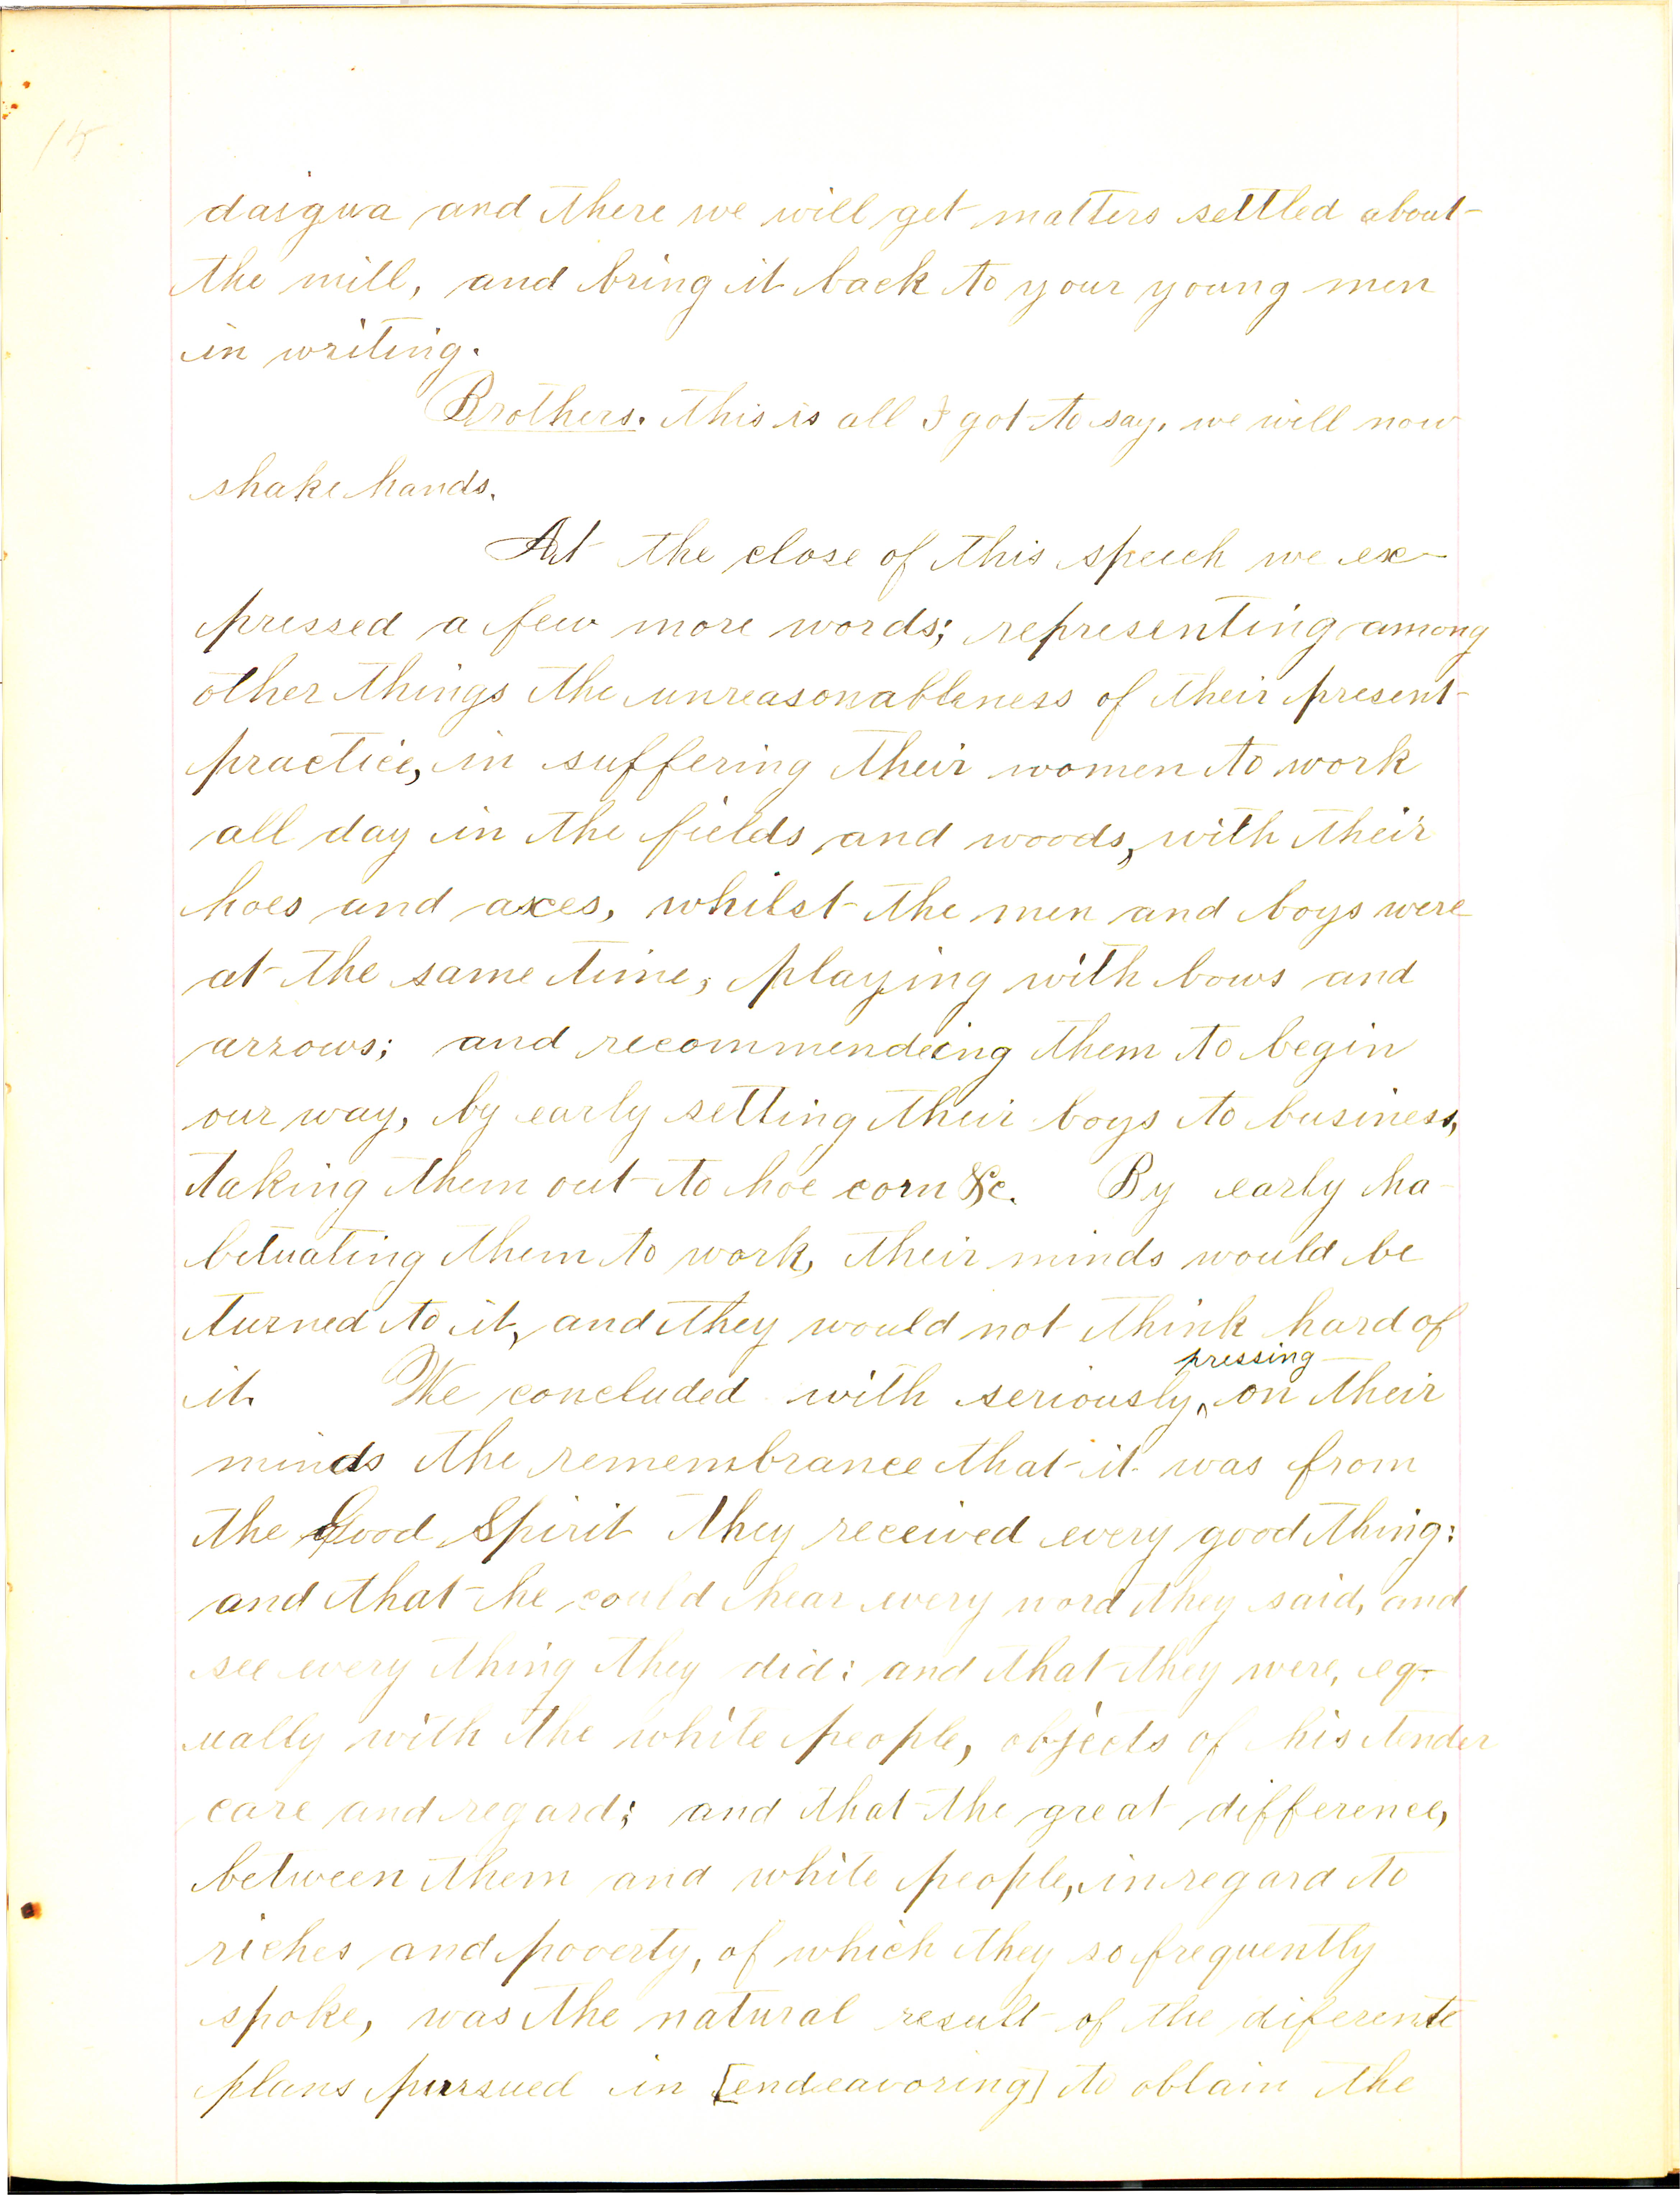 15
daigua and there we will get matters settled about
the mill, and bring it back to your young men
in writing.
Brothers. this is all I got to say, we will now
shake hands.
At the close of this speech we ex-
pressed a few more words; representing among
other things the unreasonableness of their present
practice, in suffering their women to work
all day in the fields and woods, with their
hoes and axes, whilst the men and boys were
at the same time, playing with bows and
arrows; and recommending them to begin
our way, by early setting their boys to business,
taking them out to hoe corn &c. By early ha-
bituating them to work, their minds would be
turned to it, and they would not think hard of
it. We concluded with seriously, pressing on their
minds the remembrance that it was from
the Good Spirit they received every good thing:
and that he could hear every word they said, and
see every thing they did: and that they were, eq-
ually with the white people, objects of his tender
care and regard; and that the great difference,
between them and white people, in regard to
riches and poverty, of which they so frequently
spoke, was the natural result of the diferente
plans pursued in [endeavoring] to obtain the